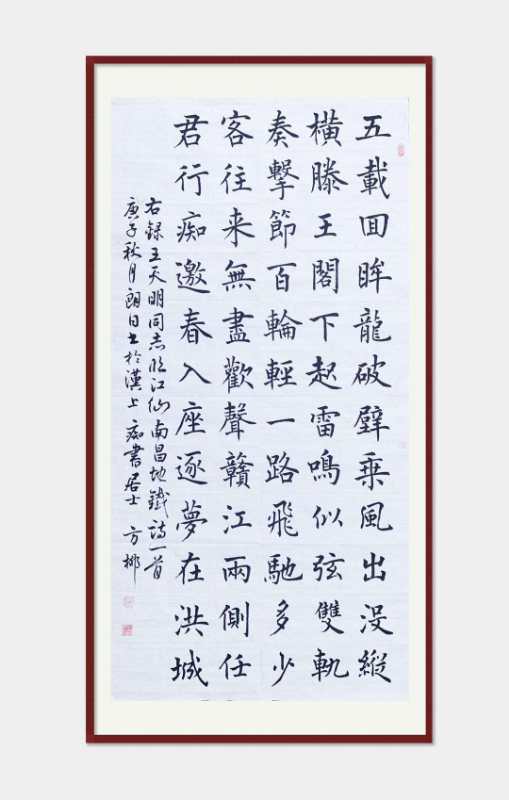 五載回眸龍破壁乘風出没縱
橫滕王閣下起雷鳴似弦雙軌
奏擊節百輪輕一路飛馳多少
客往来無盡歡聲贛江兩側任
君行痴邀春入座逐夢在洪城
右録王天明同志临江仙南昌地鐵詩一首
庚子秋月朗日書於漢上痴書居士方柳